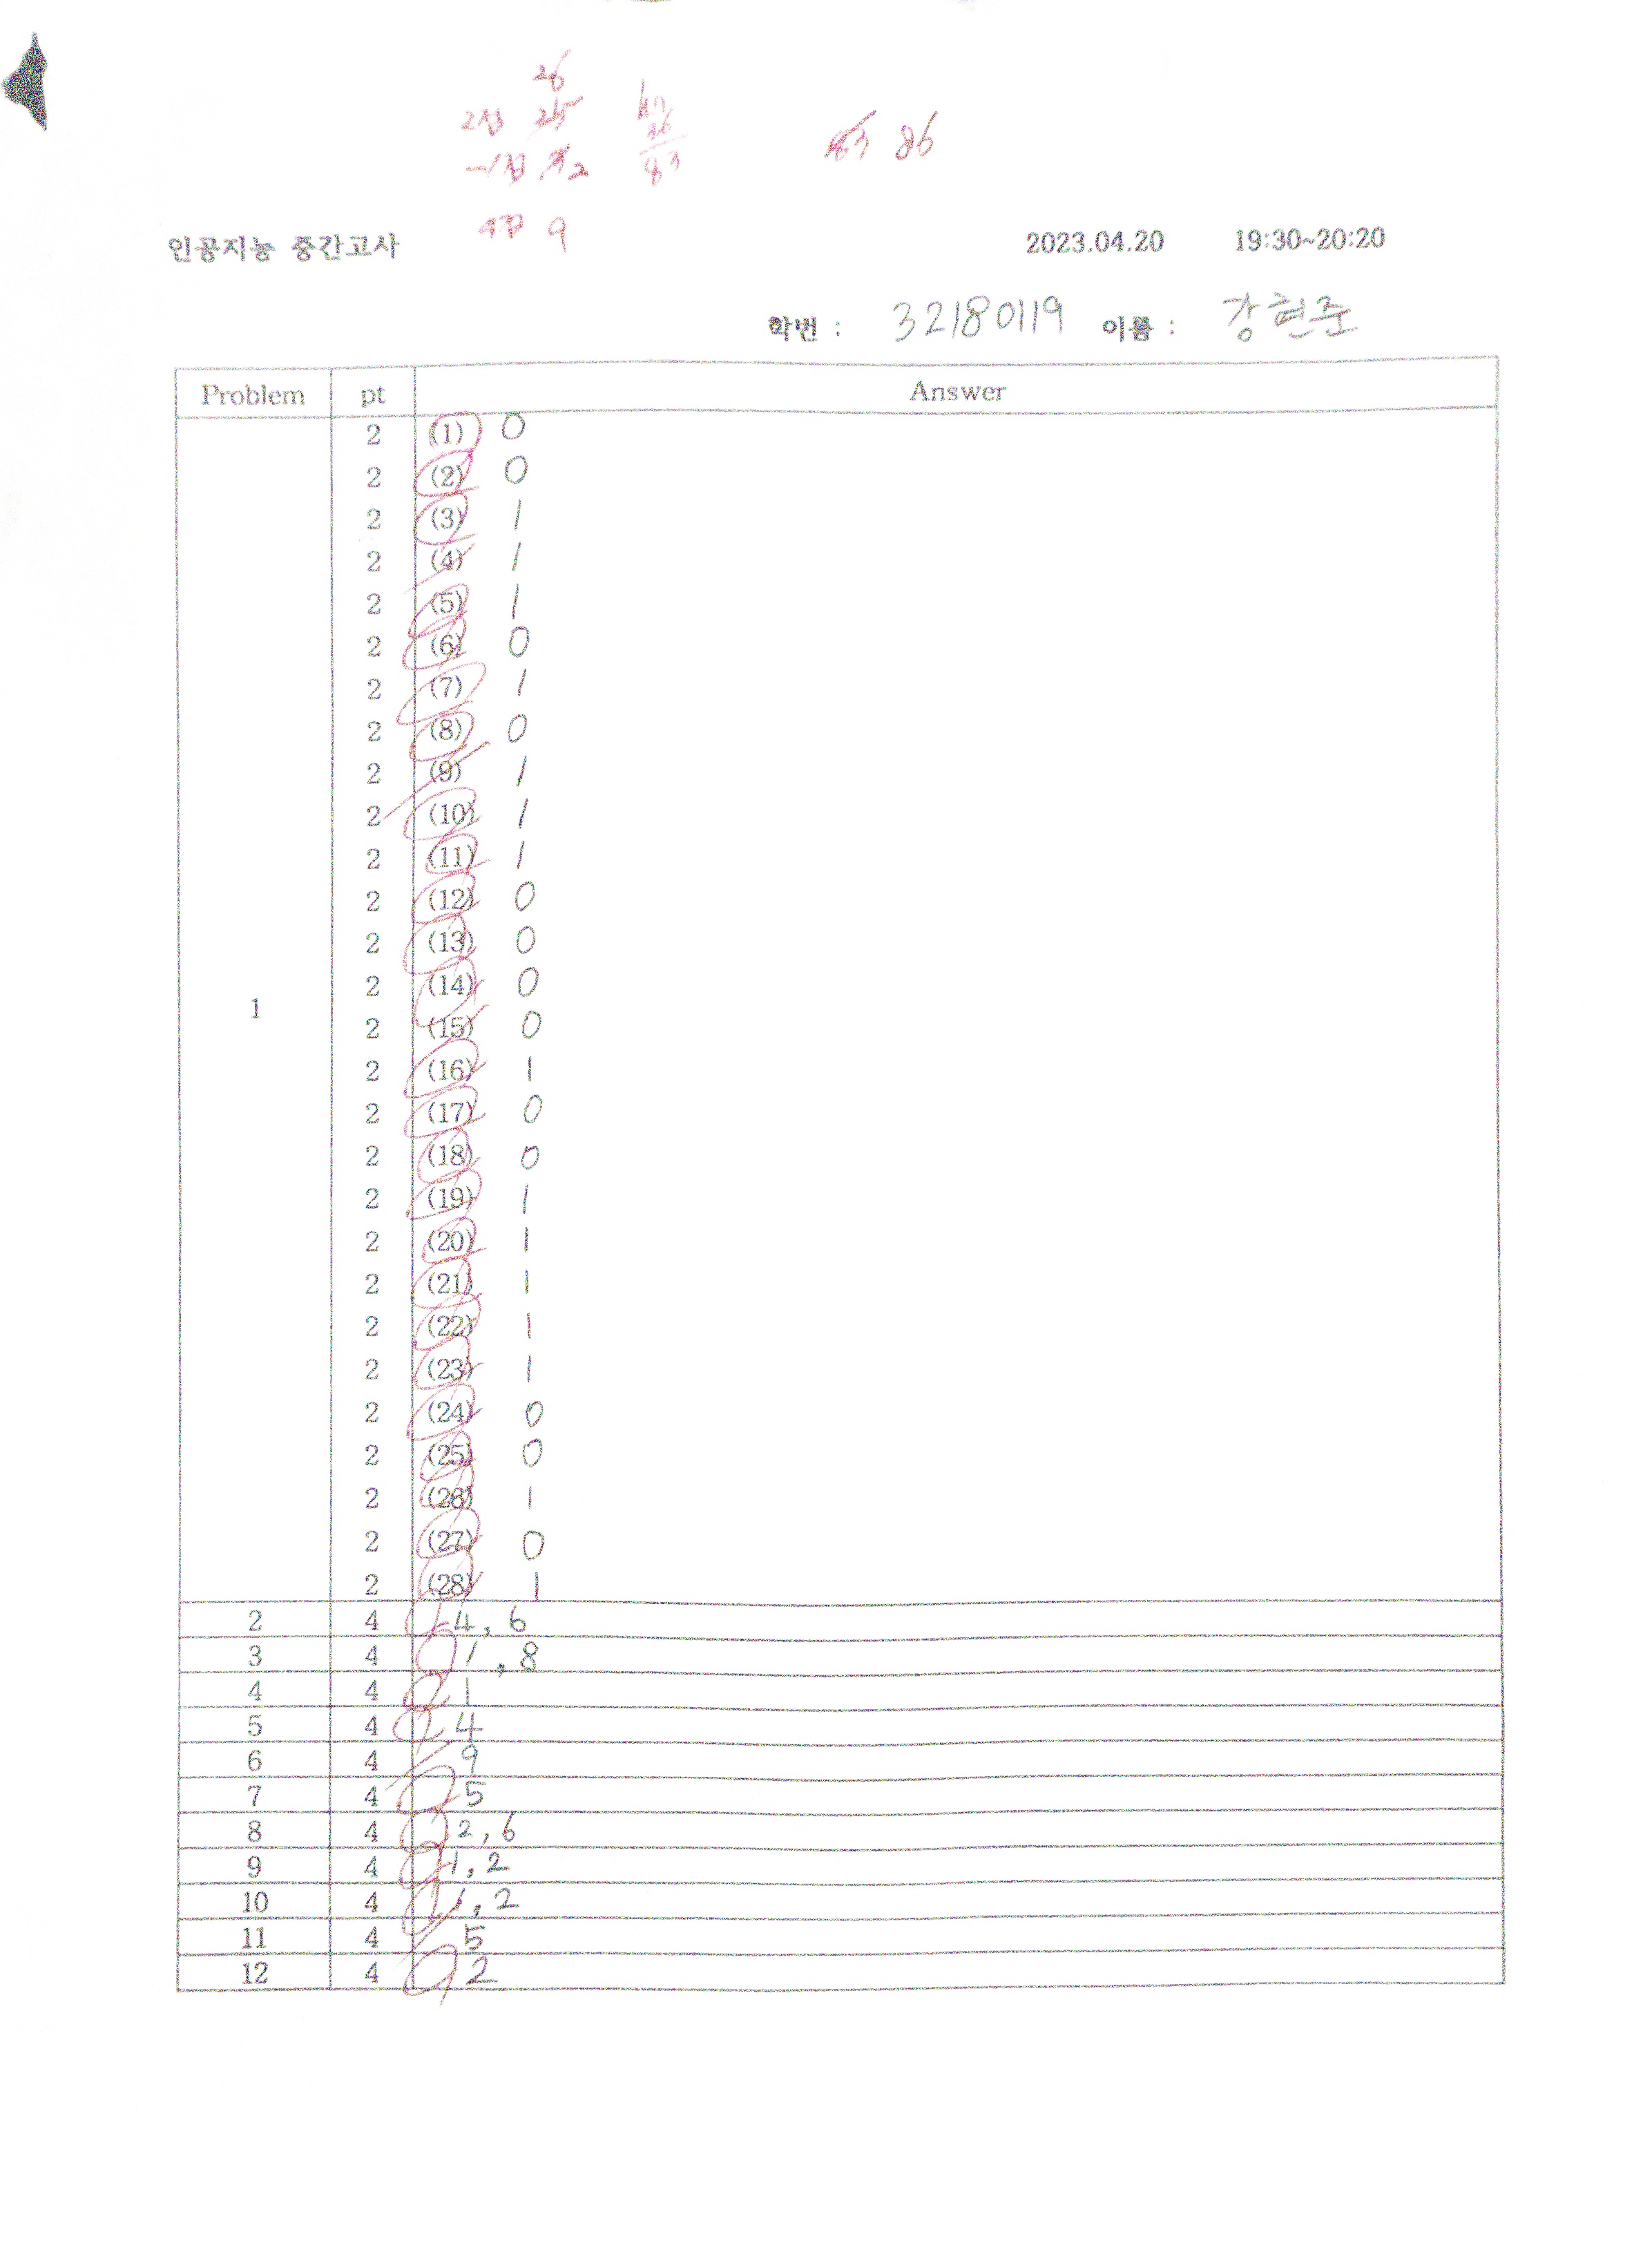 26
2점
-1점 2
4점 9
83 86
인공지능 중간고사 2023.04.20 19:30~20:20
학번 : 32180119 이름 : 강현준
Problem pt Answer
1
2 (1) 0
2 (2) 0
2 (3) 1
2 (4) 1
2 (5) 1
2 (6) 0
2 (7) 1
2 (8) 0
2 (9) 1
2 (10) 1
2 (11) 1
2 (12) 0
2 (13) 0
2 (14) 0
2 (15) 0
2 (16) 1
2 (17) 0
2 (18) 0
2 (19) 1
2 (20) 1
2 (21) 1
2 (22) 1
2 (23) 1
2 (24) 0
2 (25) 0
2 (26) 1
2 (27) 0
2 (28) 1
2 4 4, 6
3 4 1, 8
4 4 1
5 4 4
6 4 9
7 4 5
8 4 2, 6
9 4 1, 2
10 4 1, 2
11 4 5
12 4 2